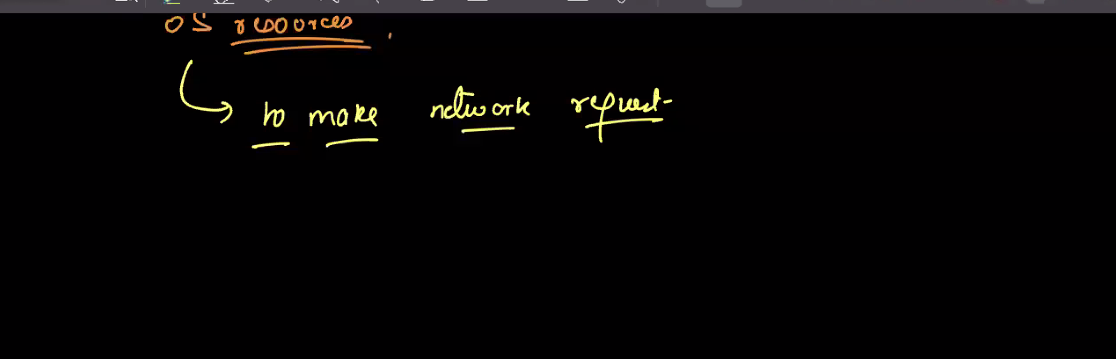 OS resources.
→ to make network request